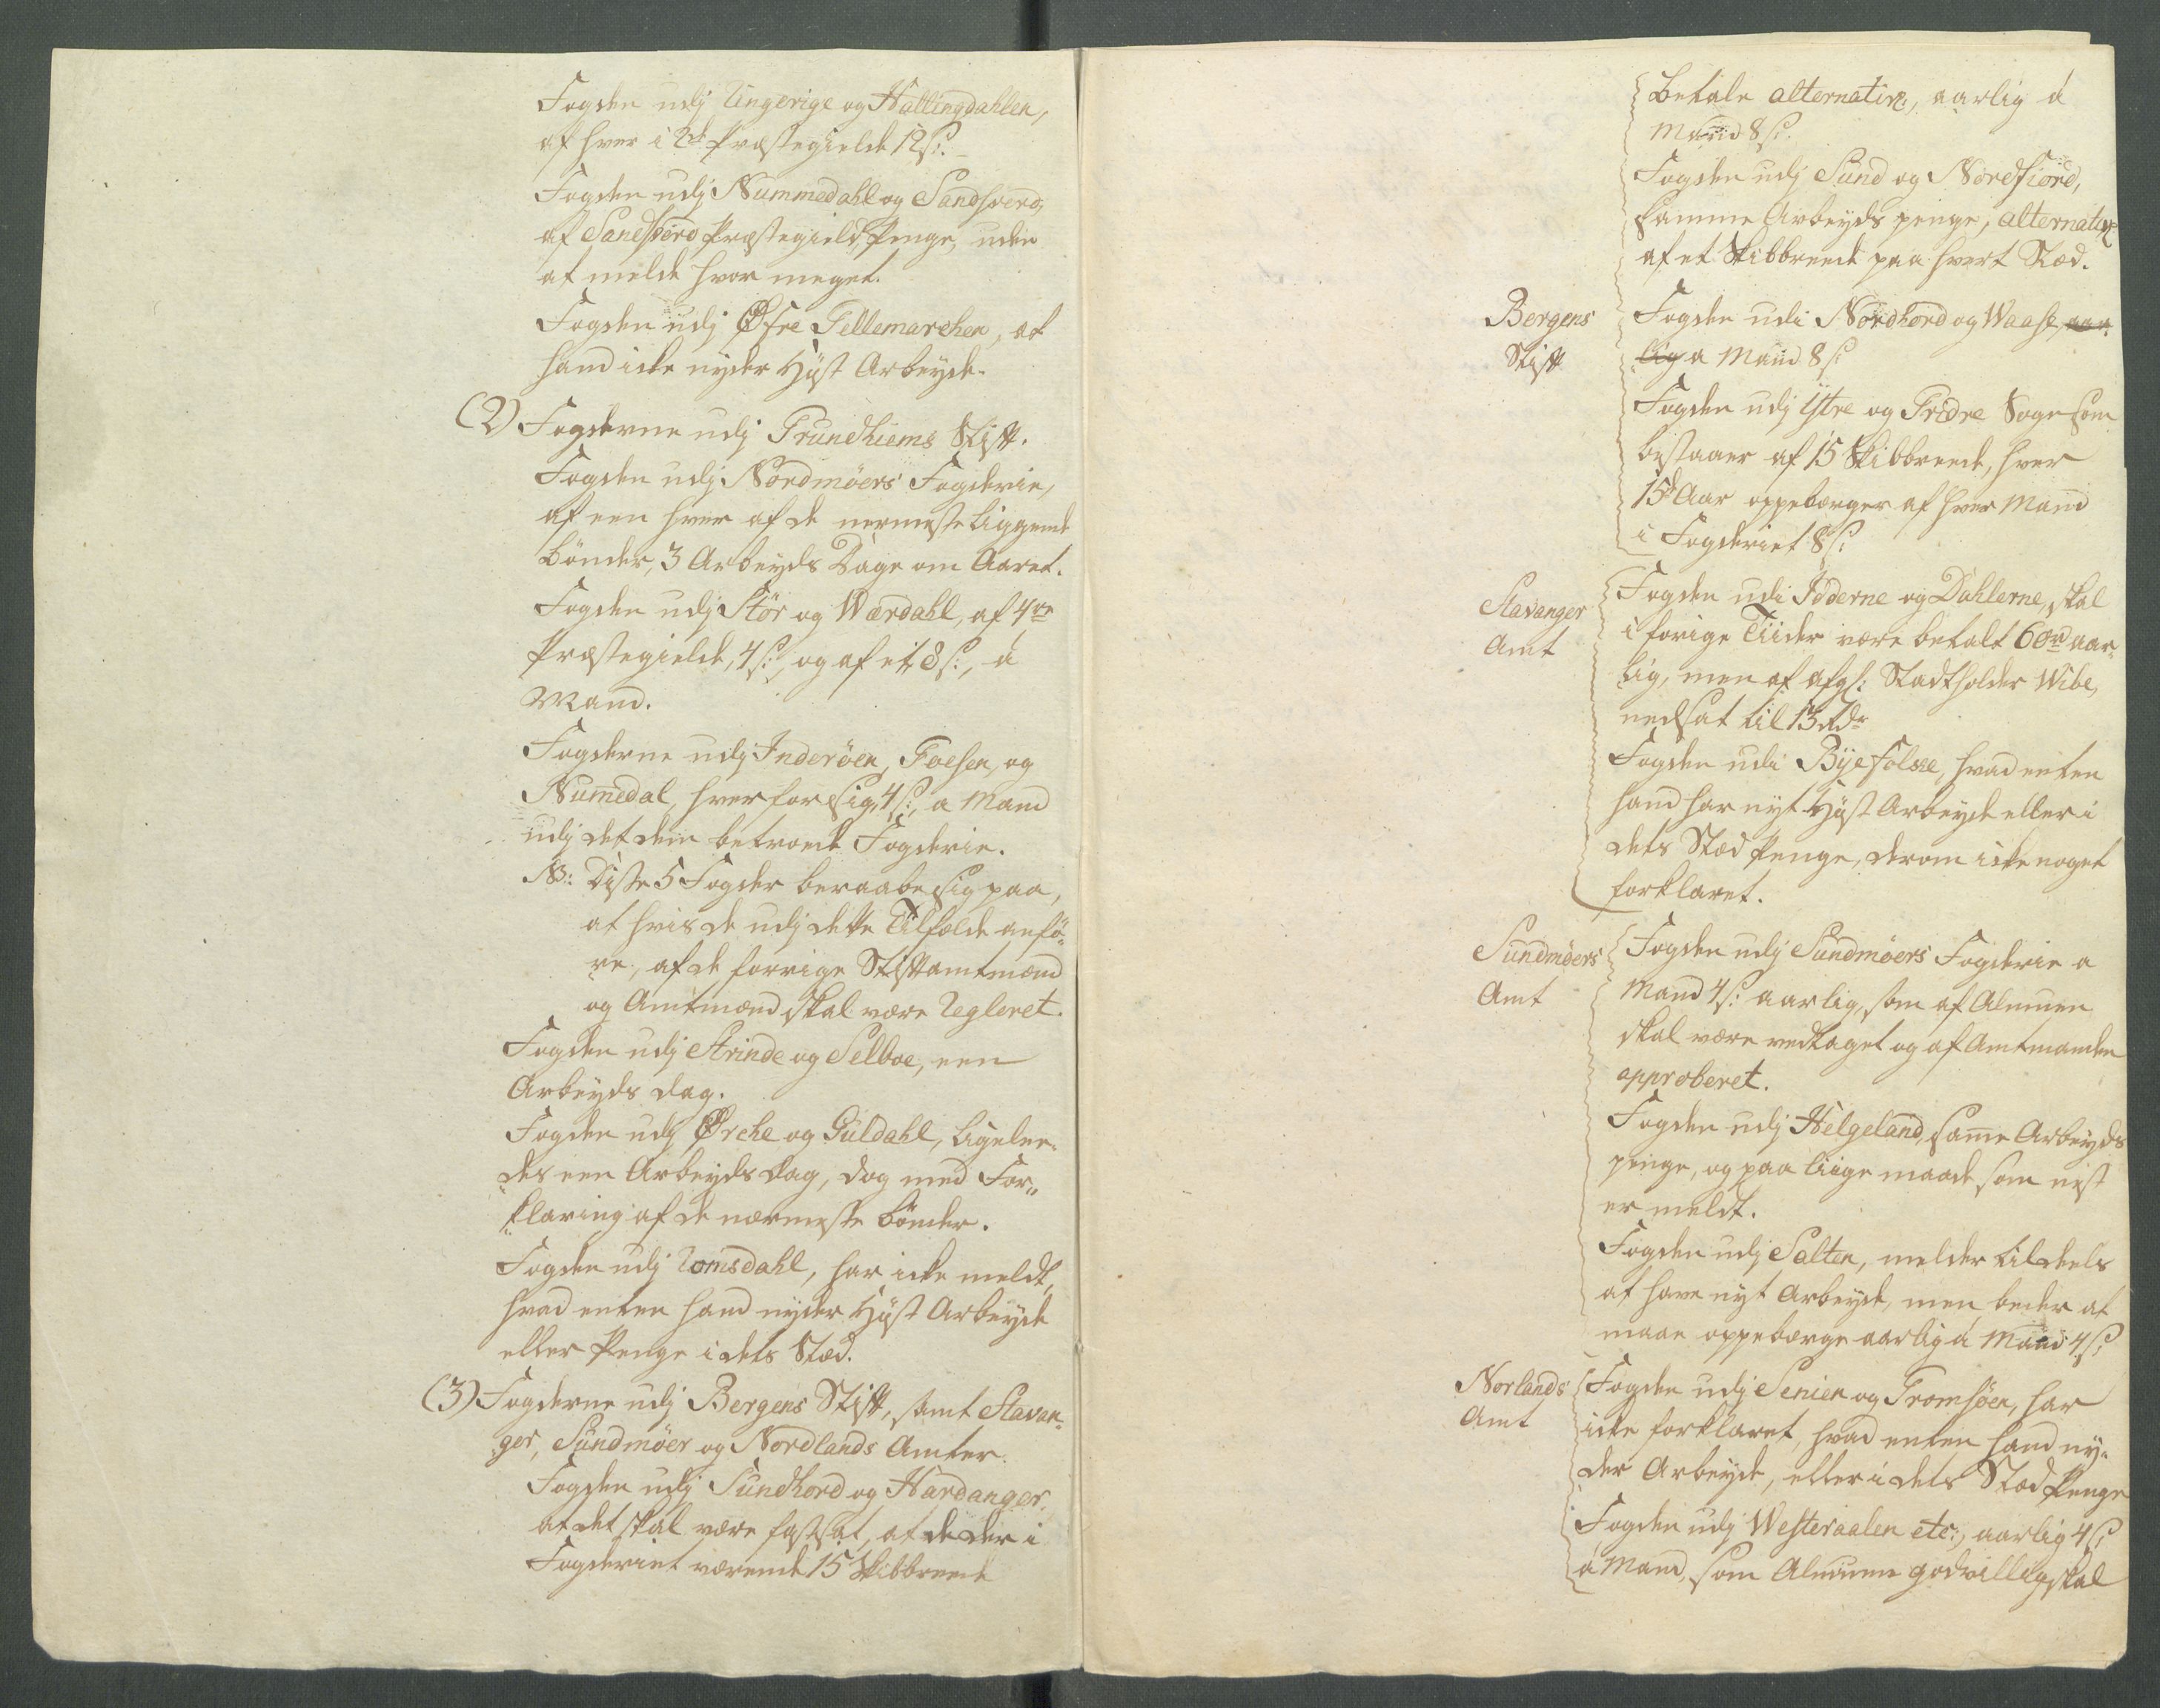 Fogden udj Ringerige og Hallingdahlen,
af hver i 2de Præstegielde 12 s:
Fogden udj Nummedahl og Sandsverd,
af Sandsverd Præstegield Penge, uden
at melde hvor meget.
Fogden udj Øfre Tellemarchen, at
hand icke nyder Høst Arbeyde.
(2) Fogderne udj Trundhiems Stift.
Fogden udj Nordmöers Fogderie,
af een hver af de nermeste liggende
Bönder, 3 Arbeyds Dage om Aaret.
Fogden udj Stör og Wærdahl, af 4re
Præstegielde, 4 s:, og af et 8 s:, á
Mand.
Fogderne udj Inderöen, Foesen, og
Numedal, hver for sig, 4 s:, a Mand
udj det dem betroede Fogderie.
NB: Disse 5 Fogder beraabe sig paa,
at hvis de udj dette Tilfælde anfö-
re, af de forrige Stiftamtmænd
og Amtmænd skal være Regleret.
Fogden udj Strinde og Selboe, een
Arbeyds dag.
Fogden udj Ørche og Guldahl, ligelee-
des een Arbeyds dag, dog med For-
klaring af de nærmeste bönder.
Fogden udj Romsdahl, har icke meldt,
hvad enten hand nyder Høst Arbeyde
eller Penge i dets Stæd.
(3) Fogderne udj Bergens Stift, samt Stavan-
ger, Sundmöer og Nordlands Amter.
Fogden udj Sundhord og Hardanger,
at det skal være fastsat, at de der i
Fogderiet værende 15 Skibbreede
betale alternativè, aarlig á
Mand 8 s:
Fogden udj Sund og Nordfiord,
samme Arbeyds penge, alternativè
af et Skibbreede paa hvert Stæd.
Bergens
Stift
Fogden udi Nordhord og Waass, aar-
lig a Mand 8 s:
Fogden udj Ytre og Indre Sogn som
bestaaer af 15 Skibbreede, hver
15de Aar oppebærger af hver Mand
i Fogderiet 8 s:
Stavanger
Amt
Fogden udi Jæderne og Dahlerne, skal
i forige Tiider være betalt 60 rd aar-
lig, men af afgl: Stadtholder Wibe,
nedsat til 13 rdr
Fogden udi Ryefölcke, hvad enten
hand har nyt Høst Arbeyde eller i
dets Stæd Penge, derom icke noget
forklaret.
Sundmöers
Amt
Fogden udj Sundmöers Fogderie a
Mand 4 s: aarlig, som af Almuen
skal være vedtaget og af Amtmanden
approberet.
Fogden udj Helgeland, same Arbeyds
penge, og paa liige maade som nest
er meldt.
Fogden udj Salten, melder tildeels
at have nyt Arbeyde, men beder at
maae oppebærge aarlig á Mand 4 s:
Norlands
Amt
Fogden udj Senien og Tromsöen, har
icke forklaret, hvad enten hand ny-
der Arbeyde, eller i dets Stæd Penge
Fogden udj Westeraalen etc:, aarlig 4 s:
á Mand, som Almuen godvillig skal